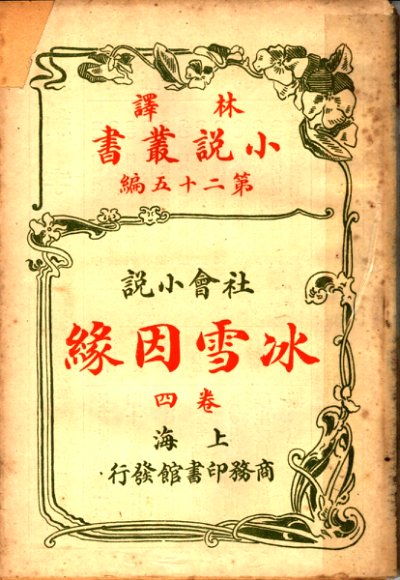 林譯
小說叢書
第二十五編
社會小說
冰雪因緣
卷四
上海
商務印書館發行